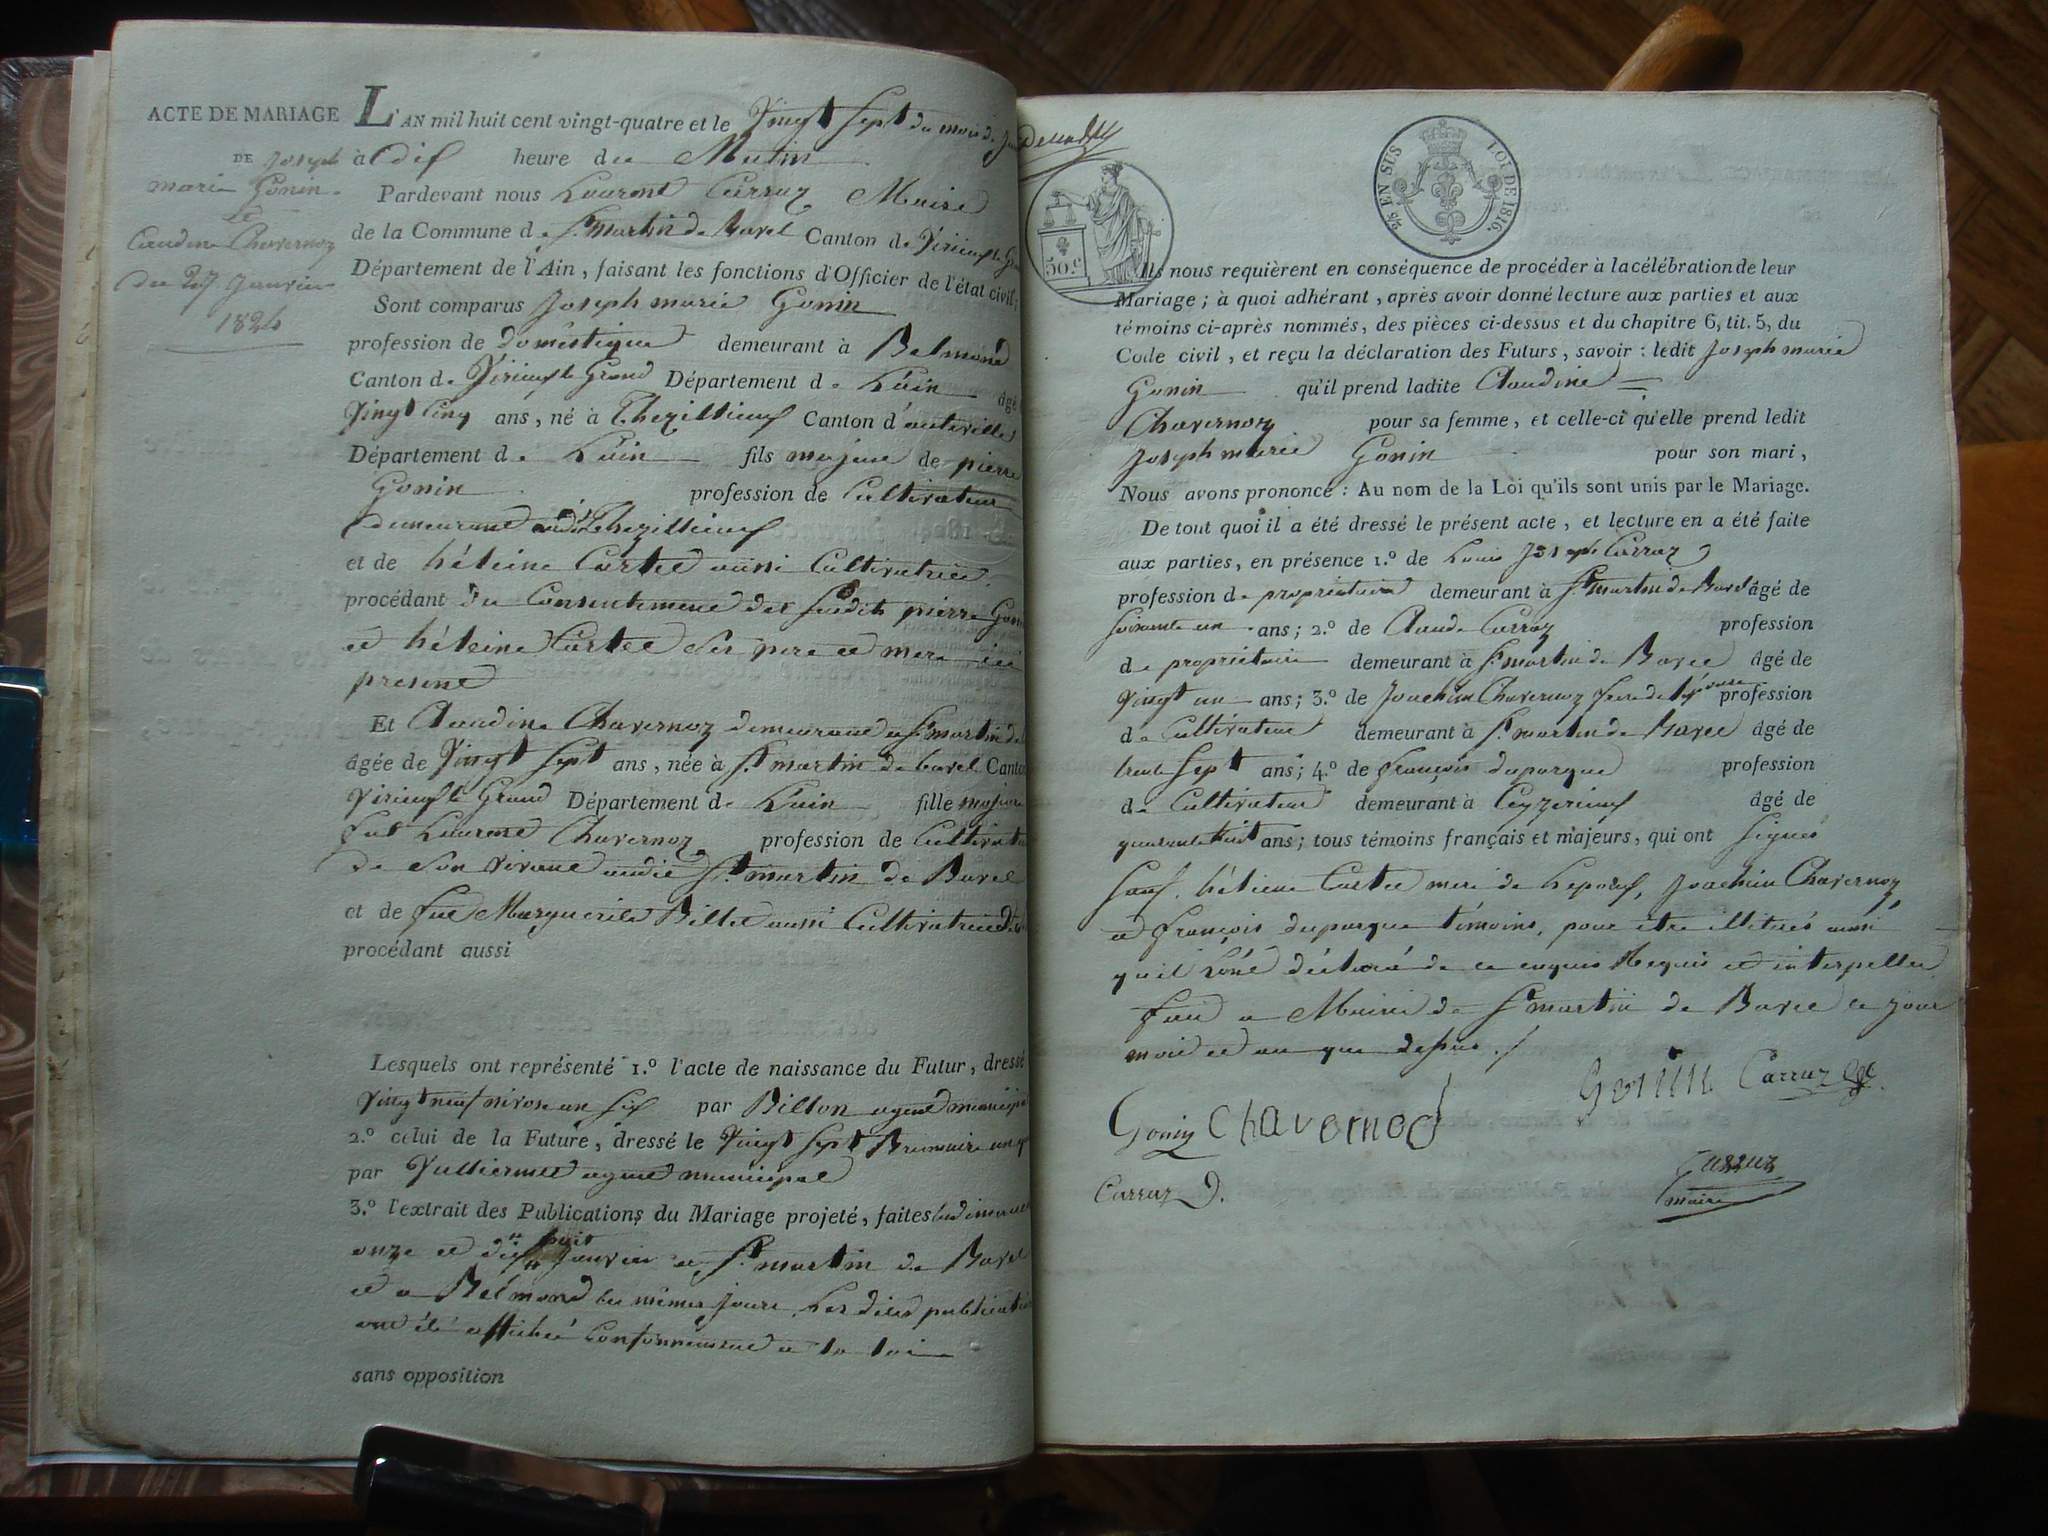 ACTE DE MARIAGE
DE Joseph
marie Gonin
Et
Claudine Chavernoz
du 27 Janvier
1824
L'AN mil huit cent vingt-quatre et le Vingt Sept du mois de
à dix heure du Matin
Pardevant nous Laurent Carraz Maire
de la Commune de St martin de Bavel Canton de Virieux le
Département de l'Ain, faisant les fonctions d'Officier de l'état civil;
Sont comparus Joseph marie Gonin
profession de domestique demeurant à Belmond
Canton de Virieux le Grand Département de L'ain âgé
Vingt Cinq ans, né à Thezillieux Canton d'auteville
Département de L'ain fils majeur de pierre
Gonin profession de Cultivateur
demeurant audit Thezillieux
et de héleine Cartet aussi Cultivatrice
procédant du Consentement des Susdits pierre Gonin
et héleine Cartet Ses pere et mere ici
present
Et Claudine Chavernoz demeurant a St martin de
âgée de Vingt Sept ans, née à St martin de bavel Canton
Virieux le Grand Département de L'ain fille majeure
feu Laurent Chavernoz profession de Cultivateur
de Son vivant audit St martin de Bavel
et de feue Marguerite Billet aussi Cultivatrice
procédant aussi
Lesquels ont représenté 1.º l'acte de naissance du Futur, dressé
Vingt neuf nivose an Six par Billon agent municipal
2.º celui de la Future, dressé le Vingt Sept Brumaire an
par Vulliermet agent municipal
3.º l'extrait des Publications du Mariage projeté, faites les dimanches
onze et dix huit Janvier a St martin de Bavel
et a Bélmond les mêmes jours. Les dites publications
ont été affiché Conformément a la Loi
sans opposition
50.c
2/5 EN SUS LOI DE 1816.
Ils nous requièrent en conséquence de procéder à la célébration de leur
Mariage; à quoi adhérant, après avoir donné lecture aux parties et aux
témoins ci-après nommés, des pièces ci-dessus et du chapitre 6, tit. 5, du
Code civil, et reçu la déclaration des Futurs, savoir: ledit Joseph marie
Gonin qu'il prend ladite Claudine
Chavernoz pour sa femme, et celle-ci qu'elle prend ledit
Joseph marie Gonin pour son mari,
Nous avons prononcé: Au nom de la Loi qu'ils sont unis par le Mariage.
De tout quoi il a été dressé le présent acte, et lecture en a été faite
aux parties, en présence 1.º de Louis Joseph Carraz
profession de propriétaire demeurant à St martin de Bavel âgé de
Soixante un ans; 2.º de Claude Carraz profession
de propriétaire demeurant à St martin de Bavel âgé de
Vingt un ans; 3.º de Joachim Chavernoz frere de l'épouse profession
de Cultivateur demeurant à St martin de Bavel âgé de
trente Sept ans; 4.º de françois duparque profession
de Cultivateur demeurant à Ceyzerieux âgé de
quarante huit ans; tous témoins français et majeurs, qui ont Signés
Sauf héleine Cartet mere de Lepoux, Joachim Chavernoz
et françois duparque témoins, pour être illitérés ainsi
qu'il L'ont déclaré de ce enquis Requis et interpellés
fait a Mairie de St martin de Bavel ce jour
mois et an que dessus./
Gonin Carraz
Gonin Chavernod
Carraz
Carraz
maire